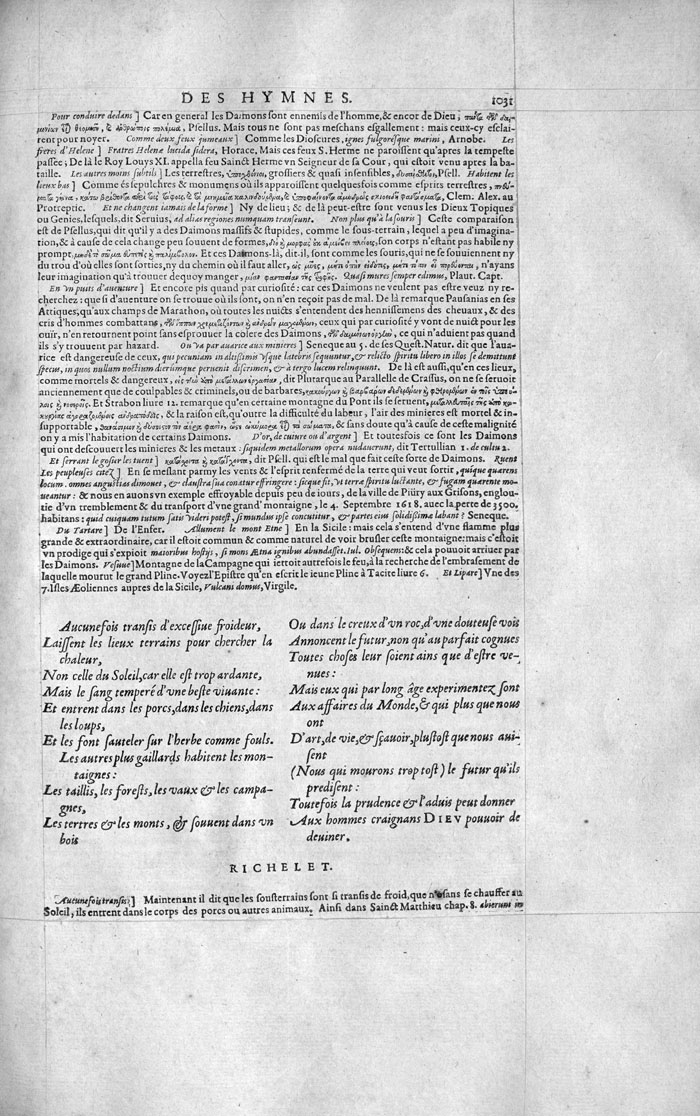 DES HYMNES. 1031
Pour conduire dedans ] Car en general les Daimons sont ennemis de l'homme, & encor de Dieu,
Psellus. Mais tous ne sont pas meschans esgallement : mais ceux-cy esclai-
rent pour noyer. Comme deux feux jumeaux ] Comme les Dioscures, ignes fulgoresque marini, Arnobe. Les
freres d'Helene ] Fratres Helenæ lucida sidera, Horace, Mais ces feux S. Herme ne paroissent qu'apres la tempeste
passée ; De là le Roy Louys XI. appella feu Sainct Herme vn Seigneur de sa Cour, qui estoit venu apres la ba-
taille. Les autres moins subtils ] Les terrestres, grossiers & quasi insensibles, Psell. Habitent les
lieux bas ] Comme és sepulchres & monumens où ils apparoissent quelquesfois comme esprits terrestres,
Clem. Alex. au
Protreptic. Et ne changent iamais de la forme ] Ny de lieu ; & de là peut-estre sont venus les Dieux Topiques
ou Genies, lesquels, dit Seruius, ad alias regiones nunquam transeunt. Non plus qu'à la souris ] Ceste comparaison
est de Psellus, qui dit qu'il y a des Daimons massifs & stupides, comme le sous-terrain, lequel a peu d'imagina-
tion, & à cause de cela change peu souuent de formes, son corps n'estant pas habile ny
prompt, Et ces Daimons-là, dit-il, sont comme les souris, qui ne se souuiennent ny
du trou d'où elles sont sorties, ny du chemin où il faut aller, n'ayans
leur imagination qu'à trouuer dequoy manger, Quasi mures semper edimus, Plaut. Capt.
En vn puits d'auenture ] Et encore pis quand par curiosité : car ces Daimons ne veulent pas estre veuz ny re-
cherchez : que si d'auenture on se trouue où ils sont, on n'en reçoit pas de mal. De là remarque Pausanias en ses
Attiques, qu'aux champs de Marathon, où toutes les nuicts s'entendent des hennissemens des cheuaux, & des
cris d'hommes combattans, ceux qui par curiosité y vont de nuict pour les
ouïr, n'en retournent point sans esprouuer la colere des Daimons, ce qui n'aduient pas quand
ils s'y trouuent par hazard. On va par auarice aux minieres ] Seneque au 5. de ses Quest. Natur. dit que l'aua-
rice est dangereuse de ceux, qui pecuniam in altissimis vsque latebris sequuntur, & relicto spiritu libero in illos se demittunt
specus, in quos nullum noctium dierumque peruenit discrimen, & à tergo lucem relinquunt. De là est aussi, qu'en ces lieux,
comme mortels & dangereux, dit Plutarque au Parallelle de Crassus, on ne se seruoit
anciennement que de coulpables & criminels, ou de barbares,
Et Strabon liure 12. remarque qu'en certaine montagne du Pont ils se seruent,
& la raison est, qu'outre la difficulté du labeur, l'air des minieres est mortel & in-
supportable, & sans doute qu'à cause de ceste malignité
on y a mis l'habitation de certains Daimons. D'or, de cuiure ou d'argent ] Et toutesfois ce sont les Daimons
qui ont descouuert les minieres & les metaux : siquidem metallorum opera nudauerunt, dit Tertullian 1. de cultu 2.
Et serrant le gosier les tuent ] dit Psell. qui est le mal que fait ceste sorte de Daimons. Ruent
Les peupleuses citez ] En se messant parmy les vents & l'esprit renfermé de la terre qui veut sortir, quique quærens
locum, omnes angustias dimouet, & claustra sua conatur effringere : sicque fit, vt terra spiritu luctante, & fugam quærente mo-
ueantur : & nous en auons vn exemple effroyable depuis peu de iours, de la ville de Piüry aux Grisons, englou-
tie d'vn tremblement & du transport d'vne grand' montaigne, le 4. Septembre 1618. auec la perte de 3500.
habitans : quid cuiquam tutum satis videri potest, si mundus ipse concutitur, & partes eius solidissimæ labant ? Seneque.
Du Tartare ] De l'Enfer. Allument le mont Etne ] En la Sicile : mais cela s'entend d'vne flamme plus
grande & extraordinaire, car il estoit commun & comme naturel de voir brusler ceste montaigne : mais c'estoit
vn prodige qui s'expioit maioribus hostijs, si mons Ætna ignibus abundasset. Iul. Obsequens : & cela pouuoit arriuer par
les Daimons. Vesuue ] Montaigne de la Campagne qui iettoit autrefois le feu, à la recherche de l'embrasement de
laquelle mourut le grand Pline. Voyez l'Epistre qu'en escrit le ieune Pline à Tacite liure 6. Et Lipare ] Vne des
7. Isles Æoliennes aupres de la Sicile, Vulcani domus, Virgile.
Aucunefois transis d'excessiue froideur,
Laissent les lieux terrains pour chercher la
chaleur,
Non celle du Soleil, car elle est trop ardante,
Mais le sang temperé d'vne beste viuante :
Et entrent dans les porcs, dans les chiens, dans
les loups,
Et les font sauteler sur l'herbe comme fouls.
Les autres plus gaillards habitent les mon-
taignes :
Les taillis, les forests, les vaux & les campa-
gnes,
Les tertres & les monts, & souuent dans vn
bois
Ou dans le creux d'vn roc, d'vne douteuse vois
Annoncent le futur, non qu'au parfait cognues
Toutes choses leur soient ains que d'estre ve-
nues :
Mais eux qui par long âge experimentez sont
Aux affaires du Monde, & qui plus que nous
ont
D'art, de vie, & sçauoir, plustost que nous aui-
sent
(Nous qui mourons trop tost) le futur qu'ils
predisent :
Toutefois la prudence & l'aduis peut donner
Aux hommes craignans DIEV pouuoir de
deuiner.
RICHELET.
Aucunefois transis ] Maintenant il dit que les sousterrains sont si transis de froid, que n'osans se chauffer au
Soleil, ils entrent dans le corps des porcs ou autres animaux. Ainsi dans Sainct Matthieu chap. 8. abierunt in